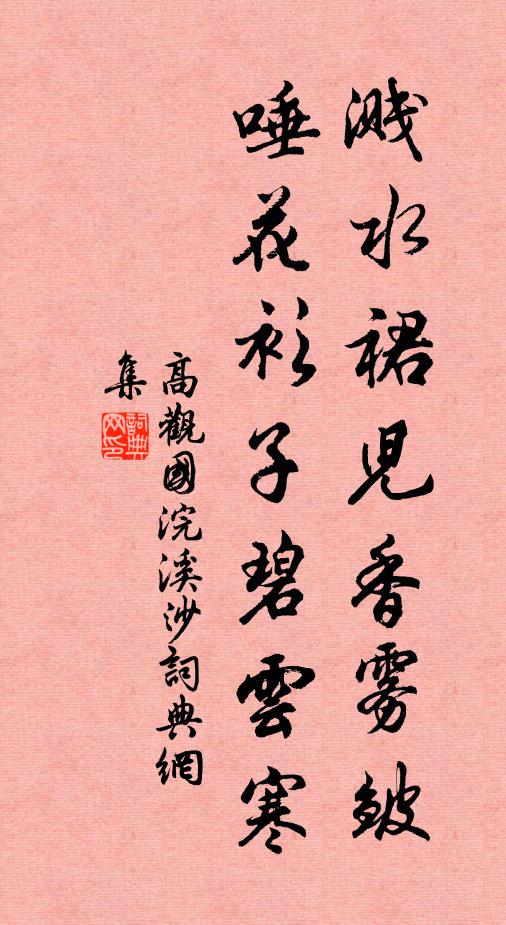 濺水裙兒香霧皺
唾花衫子碧雲寒
高觀國浣溪沙詞典網
集
詞典网印